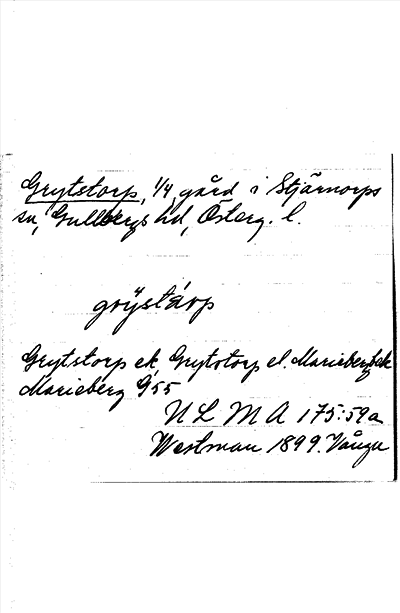 Grytstorp, 1/4 gård i Stjärnorps
sn, Gullbergs hd, Österg. l.
grýstárp
Grytstorp ek, Grytstorp el. Mariebergs ek
Marieberg G55
ULMA 175:59a
Westman 1899. Vånga